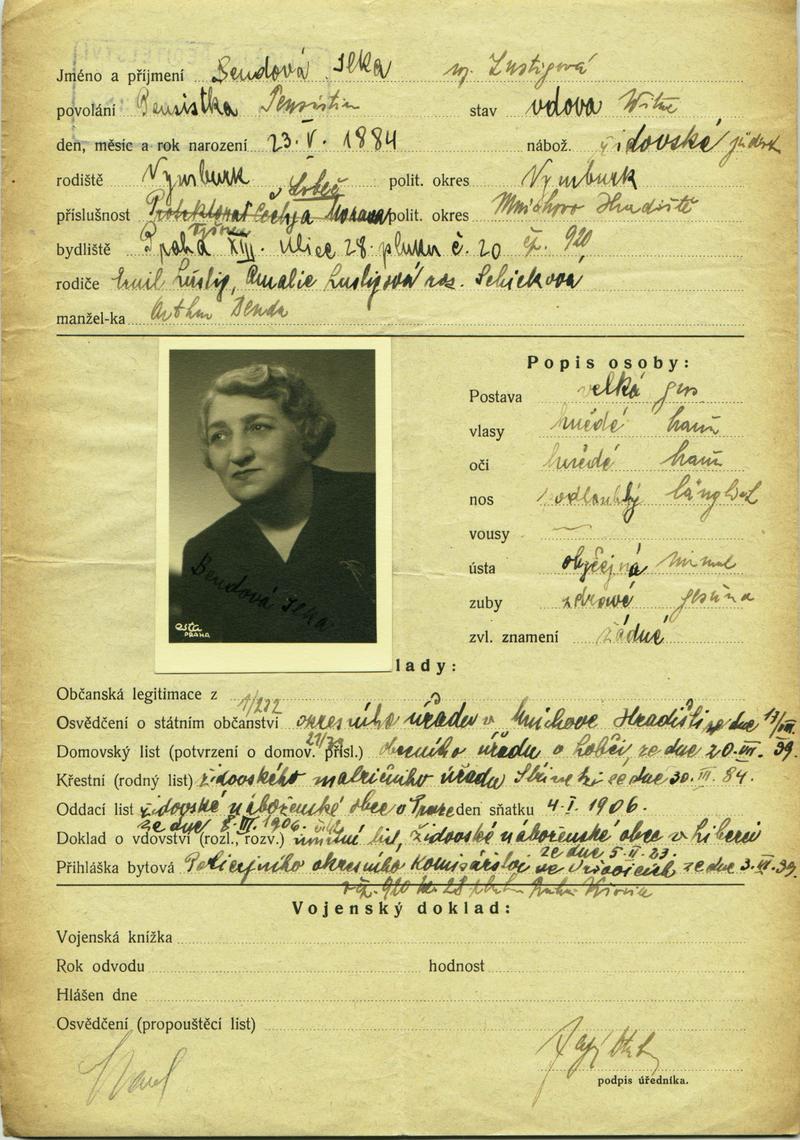 Jméno a příjmení Bendová Ilka roz. Lustigová
povolání Pensistka Pensistin stav vdova Witwe
den, měsíc a rok narození 23. V. 1884 nábož. židovské jüdisch
rodiště Nymburk polit. okres Nymburk
Lobeč
příslušnost Protektorat Čechy a Morava polit. okres Mnichovo Hradiště
bydliště Praha XIII. ulice 28. pluku č. 20 čp. 920
rodiče Emil Lustig, Amalie Lustigová roz. Schicková
manžel-ka Arthur Benda
Popis osoby:
Postava velká gross
vlasy hnědé braun
oči hnědé braun
nos podlouhlý länglich
vousy —
ústa obyčejná normal
zuby zdravé gesund
zvl. znamení žádné
Bendová Ilka
PRAHA
lady:
Občanská legitimace z
Osvědčení o státním občanství okresního úřadu v Mnichově Hradišti ze dne
Domovský list (potvrzení o domov. přísl.) obecního úřadu v Lobči, ze dne 20. 39.
Křestní (rodný list) židovského matričního úřadu ze dne 30. III. 84.
Oddací list židovské náboženské obce v Praze den sňatku 4. I. 1906.
ze dne 1906.
Doklad o vdovství (rozl., rozv.) úmrtní list, židovské náboženské obce v Liberci
ze dne 5. II. 23.
Přihláška bytová Policejního okresního komisařství ve Vršovicích ze dne 3. 39.
čp. 920
Vojenský doklad:
Vojenská knížka
Rok odvodu hodnost
Hlášen dne
Osvědčení (propouštěcí list)
podpis úředníka.